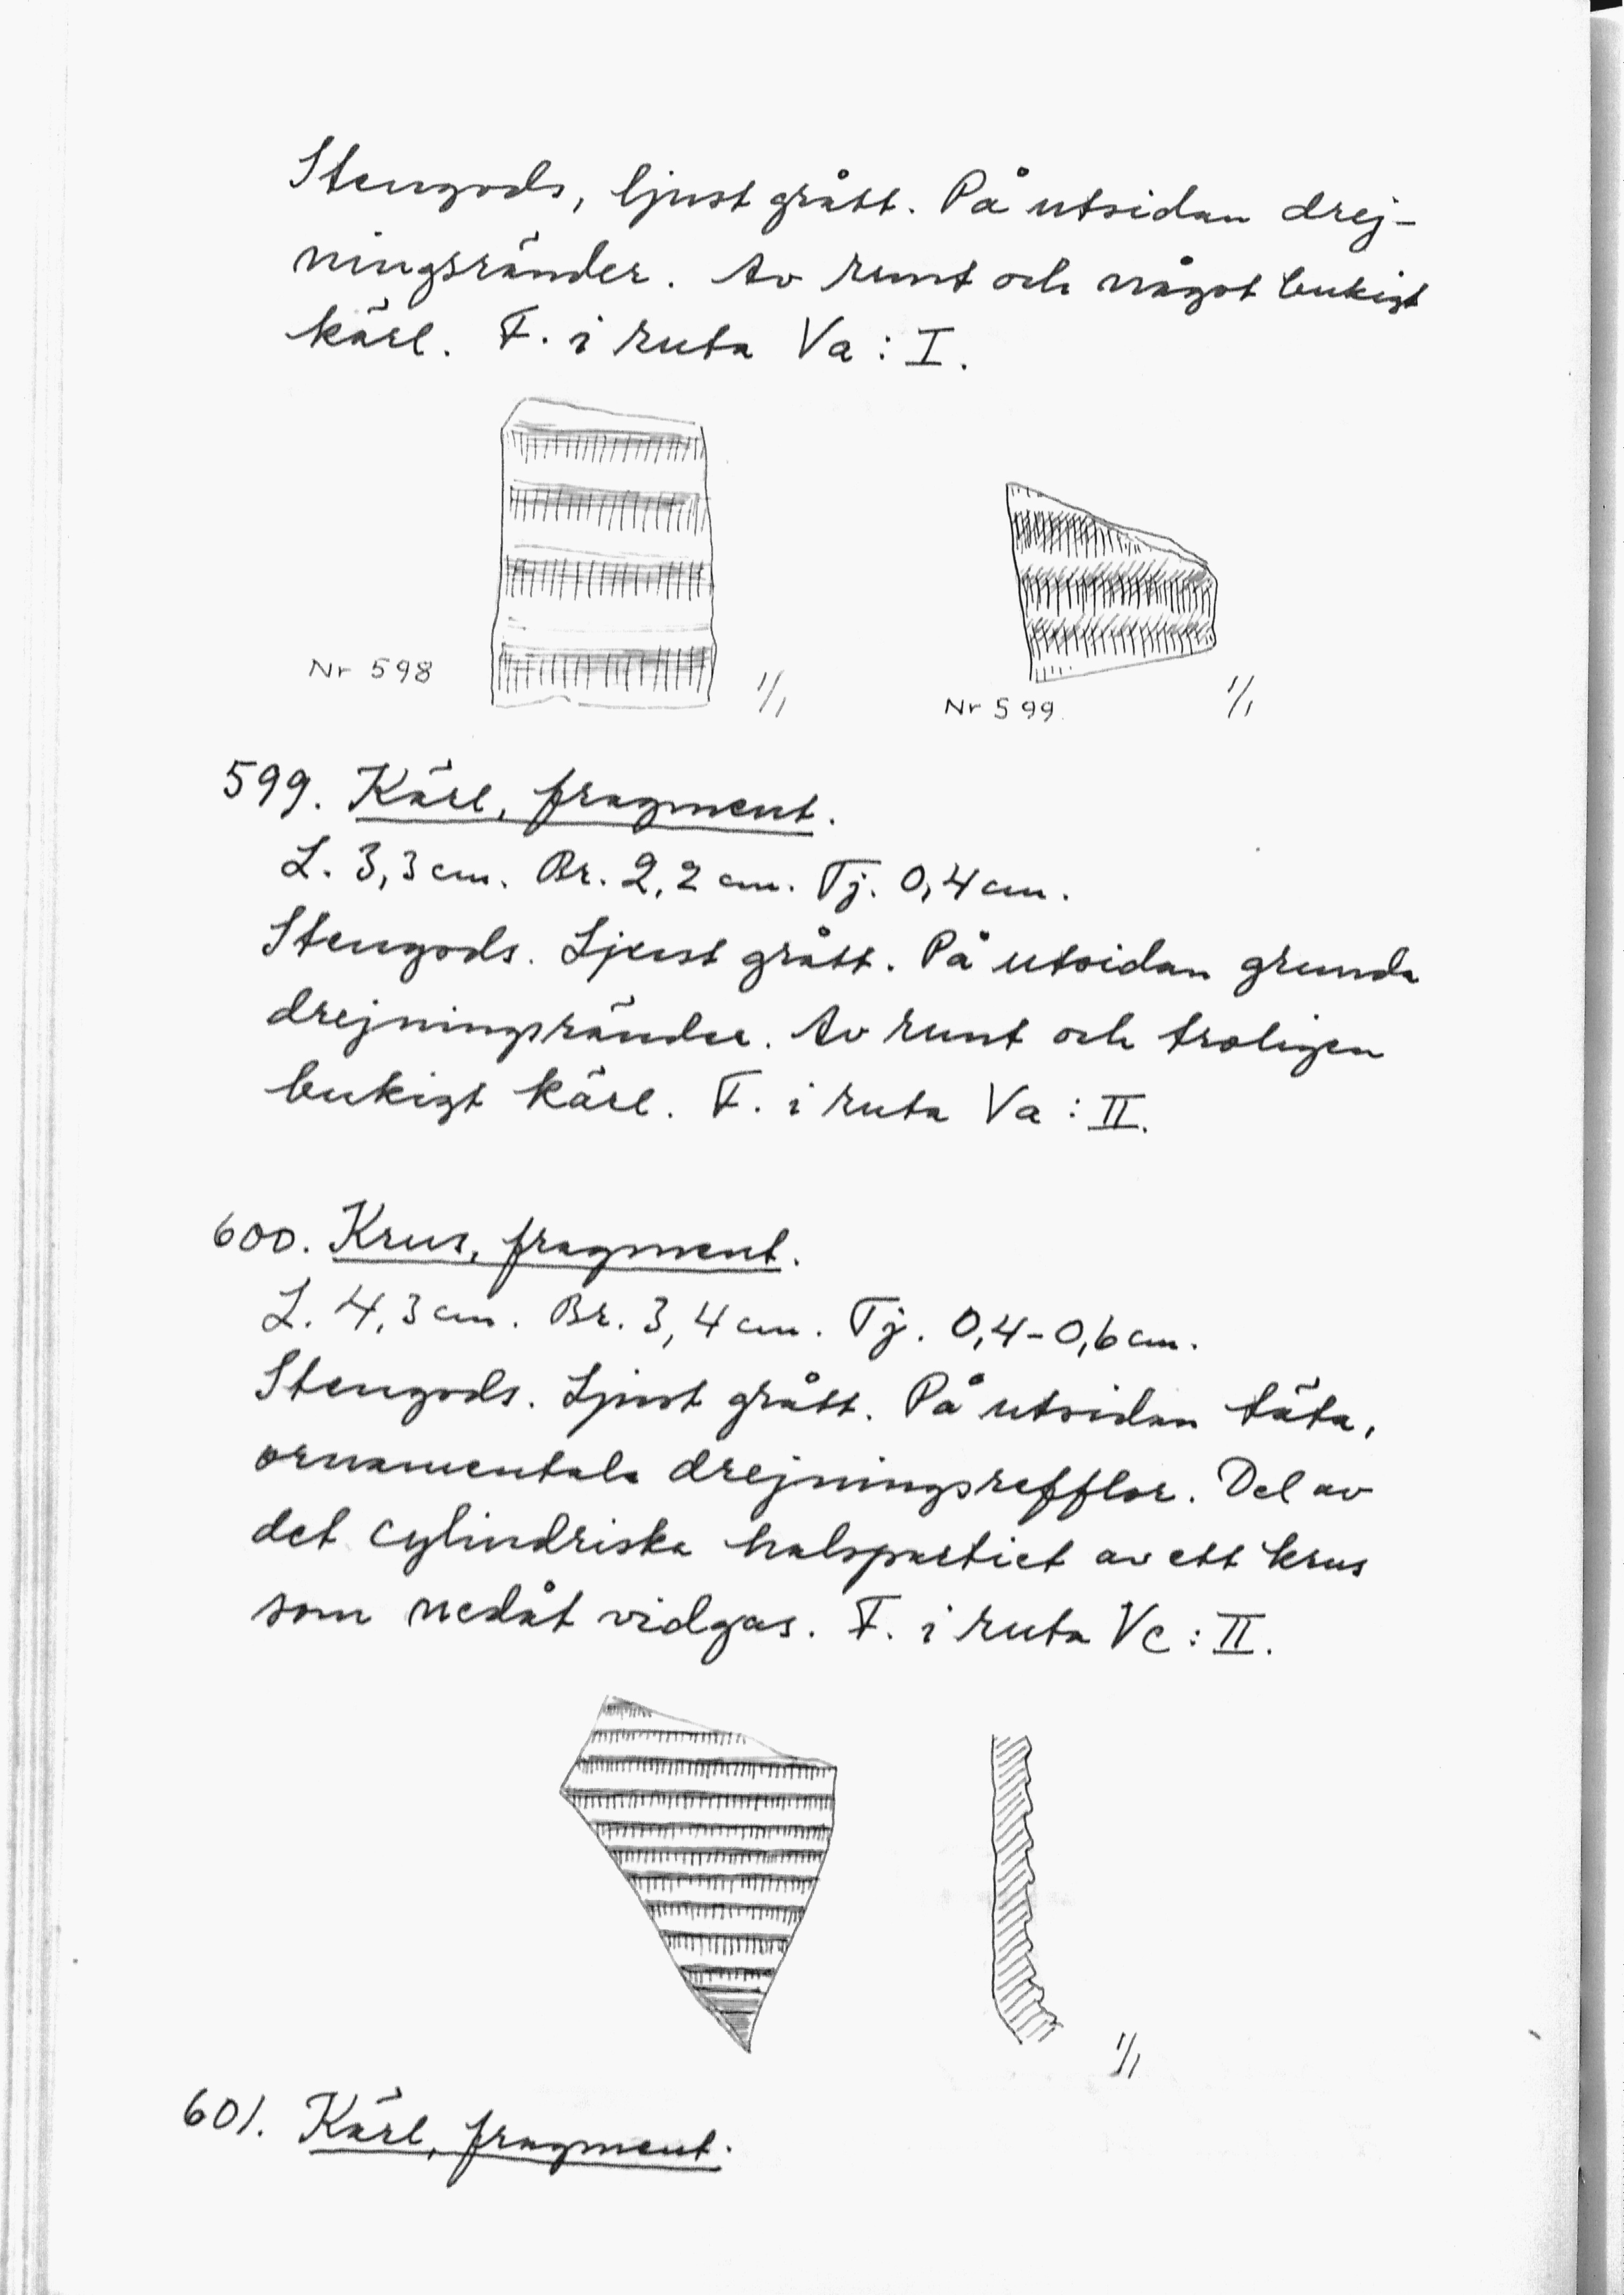 Stengods, ljust grått. På utsidan drej-
ningsränder. Av runt och något bukigt
kärl. F. i ruta Va: I.
Nr 598
1/1
Nr 599
1/1
599. Kärl, fragment.
L. 3,3 cm. Br. 2,2 cm. Tj. 0,4 cm.
Stengods. Ljust grått. På utsidan grunda
drejningsränder. Av runt och troligen
bukigt kärl. F. i ruta Va: II.
600. Krus, fragment.
L. 4,3 cm. Br. 3,4 cm. Tj. 0,4-0,6 cm.
Stengods. Ljust grått. På utsidan täta,
ornamentala drejningsrefflor. Del av
det cylindriska halspartiet av ett krus
som nedåt vidgas. F. i ruta Vc: II.
1/1
601. Kärl, fragment.